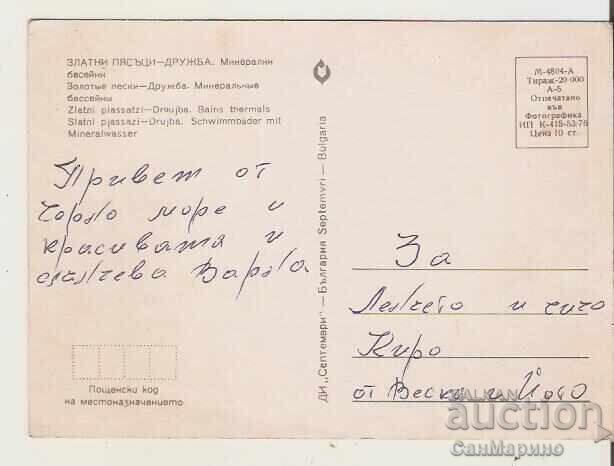 ЗЛАТНИ ПЯСЪЦИ—ДРУЖБА. Минерални
басейни
Золотые пески—Дружба. Минеральные
бассейны
Zlatni piassatzi—Droujba. Bains thermals
Slatni pjassazi—Drujba. Schwimmbäder mit
Mineralwasser
Привет от
Черно море и
красивата и
слънчева Варна
Пощенски код
на местоназначението
ДИ „Септември“—България Septemvri — Bulgaria
М-4804-А
Тираж-20 000
А-5
Отпечатано
във
Фотографика
ИП К-418-53/76
Цена 10 ст.
За
Ленчето и чичо
Киро
от Вески и Йото
BALKAN
auction
СанМарино